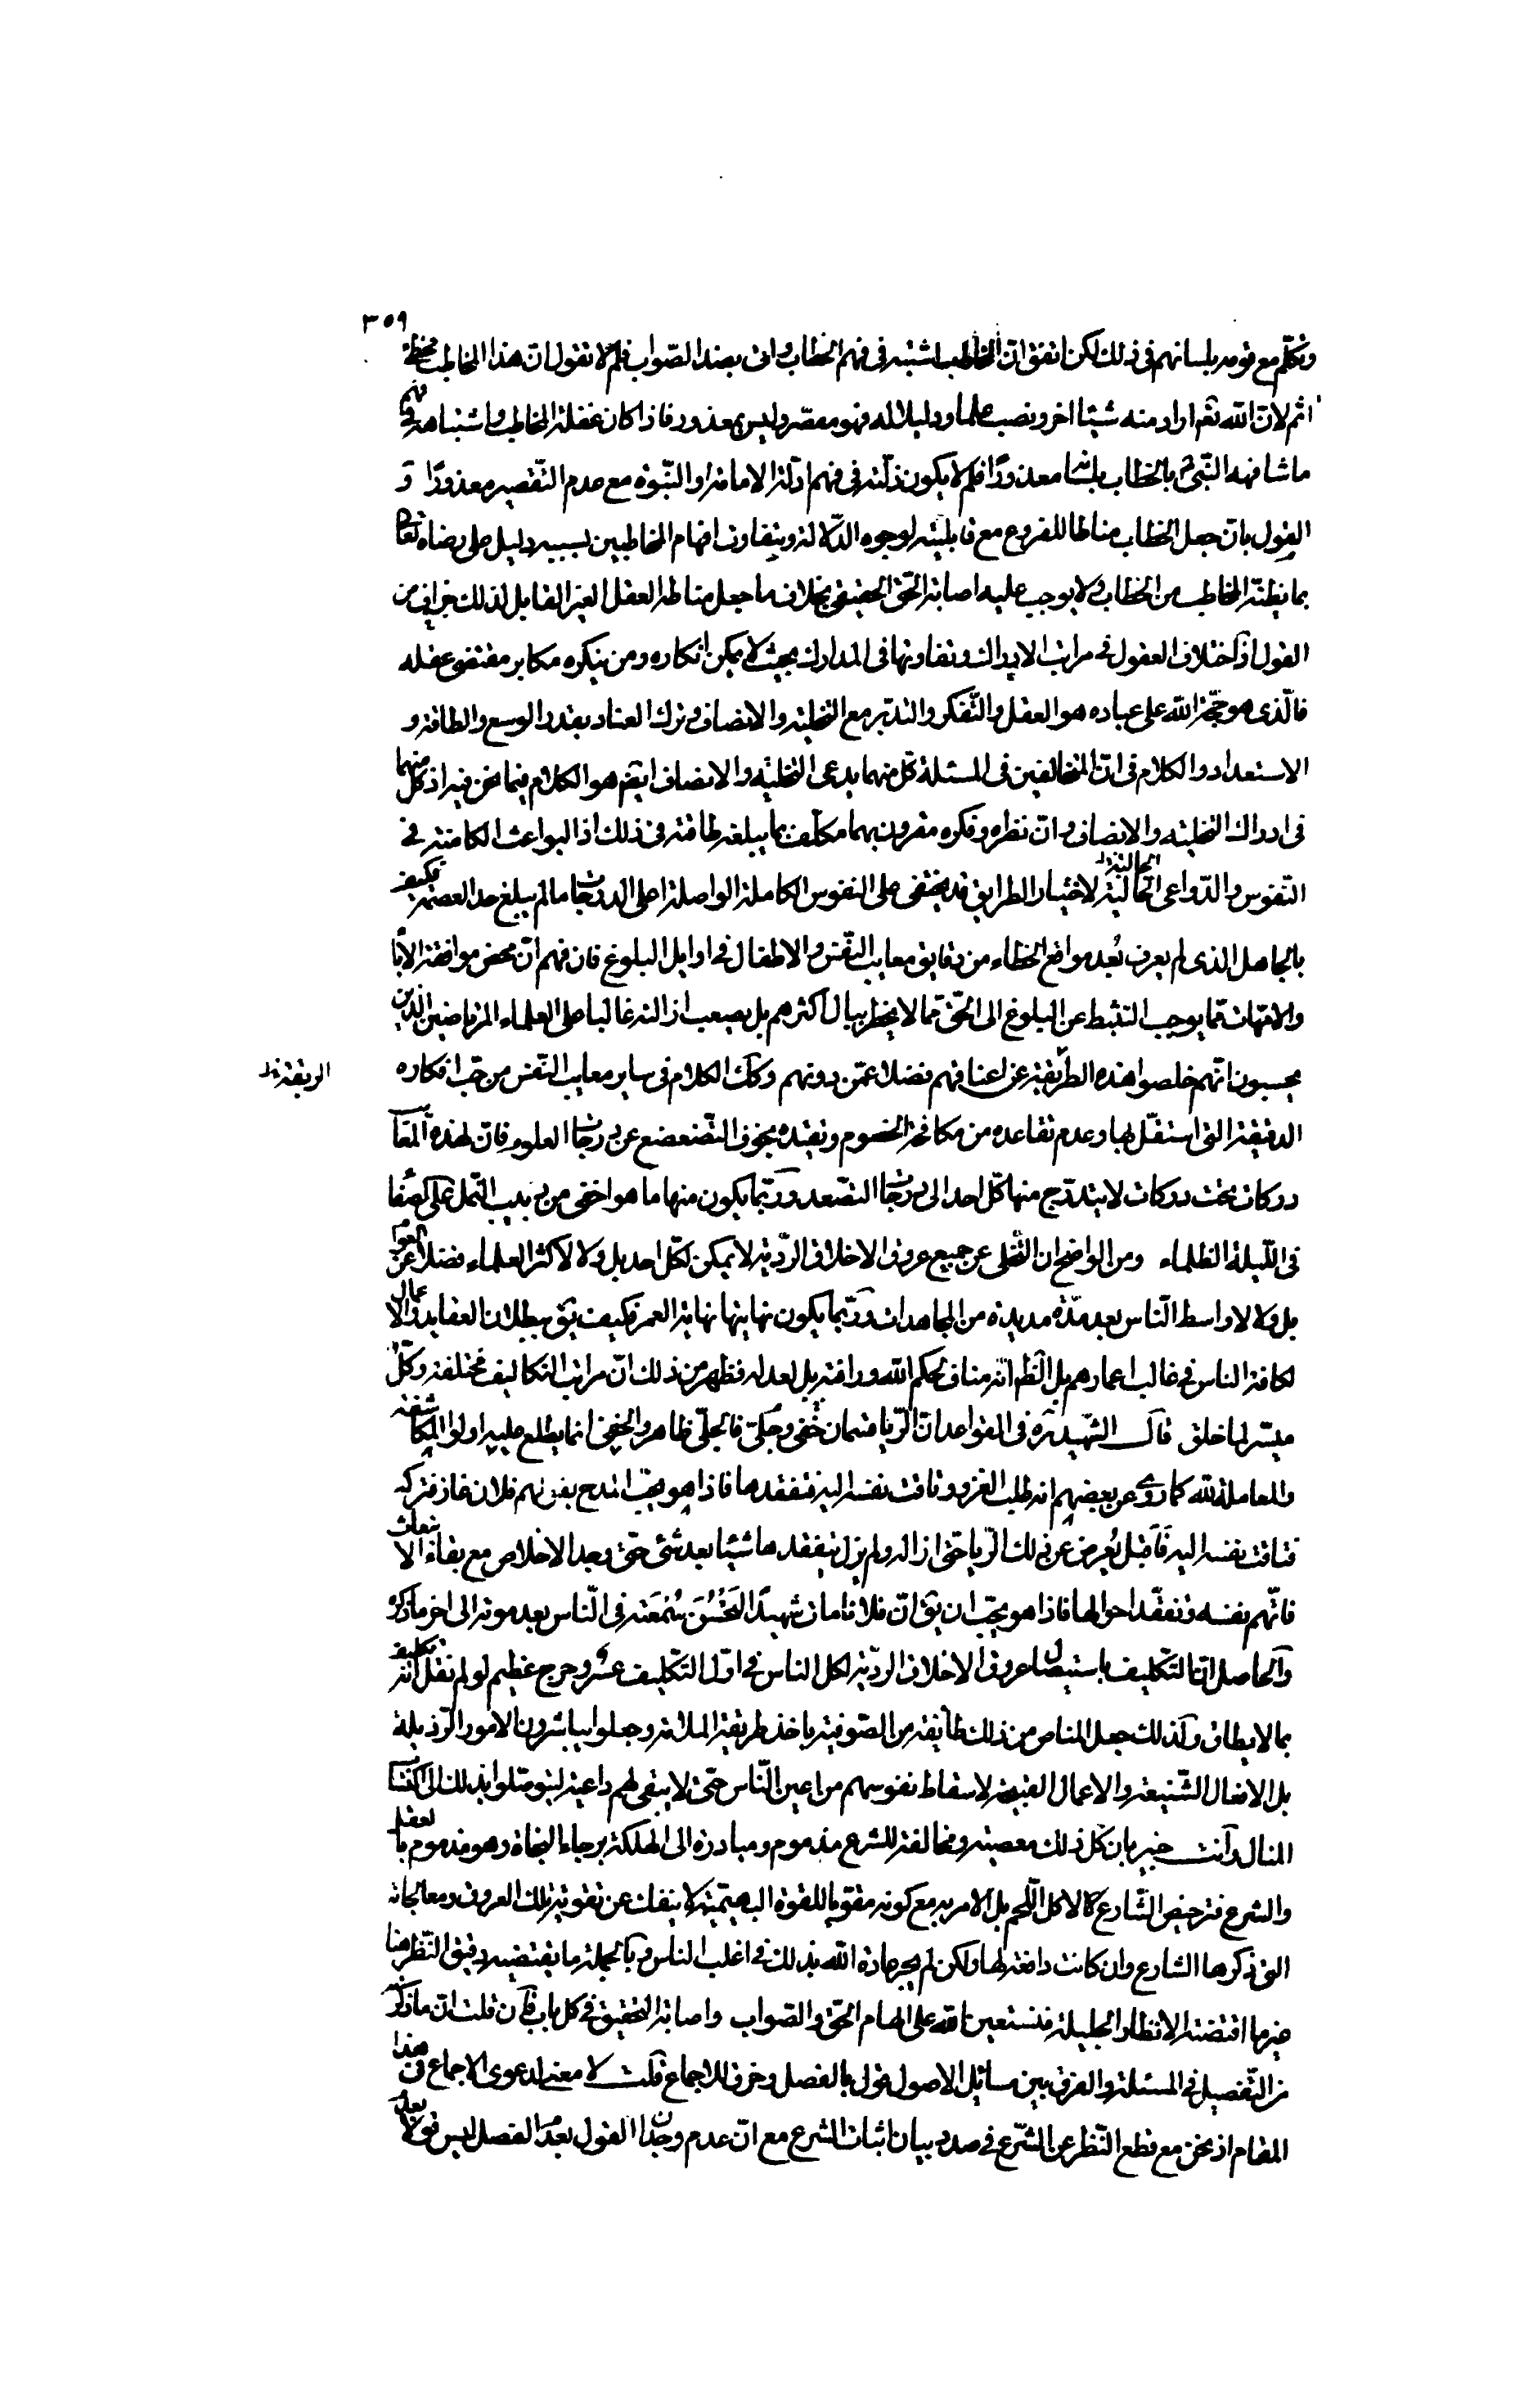 ٣٥٩
وتكلّم مع قومه بلسانهم فى ذلك لكن اتفق انّ المخاطب اشتبه فى فهم الخطاب واتى بضد الصّواب فلم لا تقول ان هذا المخاطب مخطئ
اثم لانّ اللّه تعم اراد منه شيئا اخر ونصب علما ودليلا له فهو مقصّر وليس بمعذور فاذا كان غفلة المخاطب واشتباهه فى فهم
ما شافهه النّبىّ ص بالخطاب بلسانه معذورًا فلم لا يكون زلّته فى فهم ادلّة الامامة او النّبوة مع عدم التّقصير معذورًا وَ
القول بانّ جعل الخطاب مناطا للفروع مع قابليّته لوجوه الدّلالة وبتفاوت افهام المخاطبين بسببه دليل على رضاه تعالى
بما يظنّه المخاطب من الخطاب ولا يوجب عليه اصابة الحقّ الحقيقى بخلاف ما جعل مناطه العقل الغير القابل لذلك جزاف من
القول اذ اختلاف العقول فى مراتب الادراك وتفاوتها فى المدارك بحيث لا يمكن انكاره ومن ينكره مكابر مقتضى عقله
فالّذى هو حجّة اللّه على عباده هو العقل والتّفكر والتدبّر مع التخلية والانصاف وترك العناد بقدر الوسع والطاقة و
الاستعداد والكلام فى انّ المتخالفين فى المسئلة كلّ منهما يدعى التخلية والانصاف ايضم هو الكلام فيما نحن فيه اذ كل منهما
فى ادراك التخلية والانصاف وانّ نظره وفكره مقرون بهما مكلّف بما يبلغه طاقته فى ذلك اذ البواعث الكامنة فى
النّفوس والدّواعى الحالية الجالبة ظ لاختيار الطرايق قد يختفى على النفوس الكاملة الواصلة اعلى الدرجات ما لم يبلغ حد العصمة فكيف
بالجاهل الذى لم يعرف بُعد مواقع الخطاء من دقايق معايب النّفس والاطفال فى اوايل البلوغ فان فهم انّ محض موافقة الأبآ
والامّهات ممّا يوجب التثبط عن البلوغ الى الحقّ ممّا لا يخطر ببال اكثرهم بل يصعب ازالته غالبا على العلماء المرتاضين الذين
يحسبون انّهم خلصوا هذه الطّريقة عن اعناقهم فضلا عمّن دونهم وكك الكلام فى ساير معايب النّفس من حبّ افكاره
الربقة ظ
الدقيقة التى استقلّ بها وعدم تقاعده من مكافحة الخصوم وتقيّده بخوف التّضعضع عن درجات العلوم فانّ لهذه المقامات
دركات تحت دركات لا يتدرّج منها كلّ احد الى درجات التصّعد وربّما يكون منها ما هو اخفى من دبيب النّمل على الصّفا
فى اللّيلة الظلماء ومن الواضح ان التّخلى عن جميع عروق الاخلاق الردّية لا يمكن لكلّ احد بل ولا لاكثر العلماء فضلا عن العوام
بل ولا لاواسط النّاس بعد مدّة مديدة من المجاهدات وربّما يكون نهايتها نهاية العمر فكيف يق ببطلان العقايد والاعمال
لكافة الناس فى غالب اعمارهم بل الظم انّه مناف لحكم اللّه ورافته بل لعدله فظهر من ذلك انّ مراتب التكاليف مختلفة وكلّ
ميسّر لما خلق قال الشّهيد ره فى القواعد انّ الرّيا قسمان خُفى وجَلىّ فالجلىّ ظاهر والخفىّ انما يطلع عليه اولوا المكاشفة
والمعاملة للّه كما روى عن بعضهم انه طلب الغزو وتاقت نفسه اليه فتفقدها فاذا هو يحبّ المدح بقولهم فلان غاز فتركه
فتاقت نفسه اليه فاقبل يُعرض عن ذلك الرّيا حتّى ازاله ولم يزل يتفقدها شيئا بعد شئ حتّى وجد الاخلاص مع بقاء الانبعاث
فاتّهم نفسه وتفقّد احوالها فاذا هو يحبّ ان يق انّ فلانا مات شهيدًا لتَحْسُنَ سُمعَته فى النّاس بعد موته الى اخر ما ذكره
والحاصل انّ التكليف باستيصال عروق الاخلاق الردّية لكل الناس فى اوّل التكليف عسر وحرج عظيم لو لم نقل انّه تكليف
بما لا يطاق ولذلك جعل المناص من ذلك طآيفة من الصّوفية باخذ طريقة الملامة وجعلوا يباشرون الامور الرّذيلة
بل الافعال الشّنيعة والاعمال القبيحة لاسقاط نفوسهم من اعين النّاس حتّى لا يبقى لهم داعية ليتوصّلوا بذلك الى اكتساب
المنال وانت خبير بان كل ذلك معصية ومخالفة للشرع مذموم ومبادرة الى الهلكة برجاء النجاة وهو مذموم بالعقل
والشرع فترخيص الشّارع كالاكل اللّحم بل الامر به مع كونه مقويا للقوة البهيميّة لا ينفك عن تقوية تلك العروق ومعالجاته
التى ذكرها الشارع وان كانت دافعة لها ولكن لم يجر عادة اللّه بذلك فى اغلب الناس وبالجملة ما يقتضيه دقيق النّظر هنا
غير ما اقتضته الانظار الجليلة فنستعين باللّه على الهام الحقّ والصّواب واصابة التحقيق فى كل باب فان قلت انّ ما ذكر
من التّفصيل فى المسئلة والفرق بين مسائل الاصول قول بالفصل وخرق للاجماع قلت لا معنى لدعوى الاجماع فى هذا
المقام اذ نحن مع قطع النّظر عن الشّرع فى صدد بيان اثبات الشرع مع انّ عدم وجدان القول بعدم الفصل ليس قولا بعدم